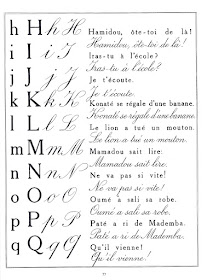 h H h H Hamidou, ôte-toi de là!
Hamidou, ôte-toi de là!
i I i I Iras-tu à l'école?
Iras-tu à l'école?
j J j J Je t'écoute.
Je t'écoute
k K k K Konaté se régale d'une banane.
Konaté se régale d'une banane.
l L l L Le lion a tué un mouton.
Le lion a tué un mouton.
m M m M Mamadou sait lire.
Mamadou sait lire.
n N n N Ne va pas si vite!
Ne va pas si vite!
o O o O Oumé a sali sa robe.
Oumé a sali sa robe.
p P p P Paté a ri de Mademba.
Paté a ri de Mademba.
q Q q Q Qu'il vienne!
Qu'il vienne!